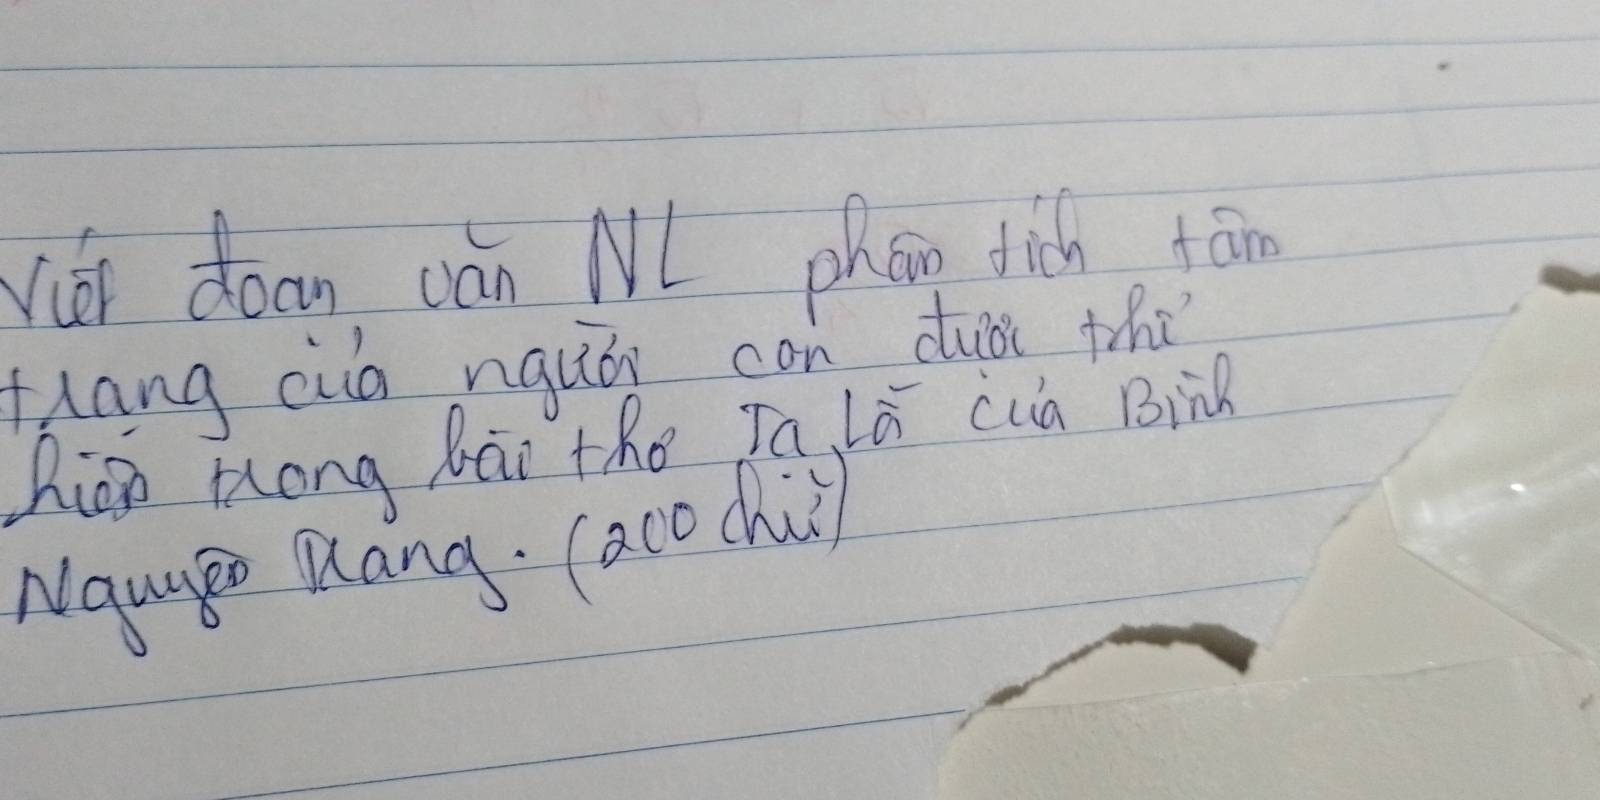 Viết đoạn văn NL phân tích tâm
trạng của người con được thể
hiện trong bài thơ Tạ Lỗi của Bình
Nguyên Trang. (200 chữ)